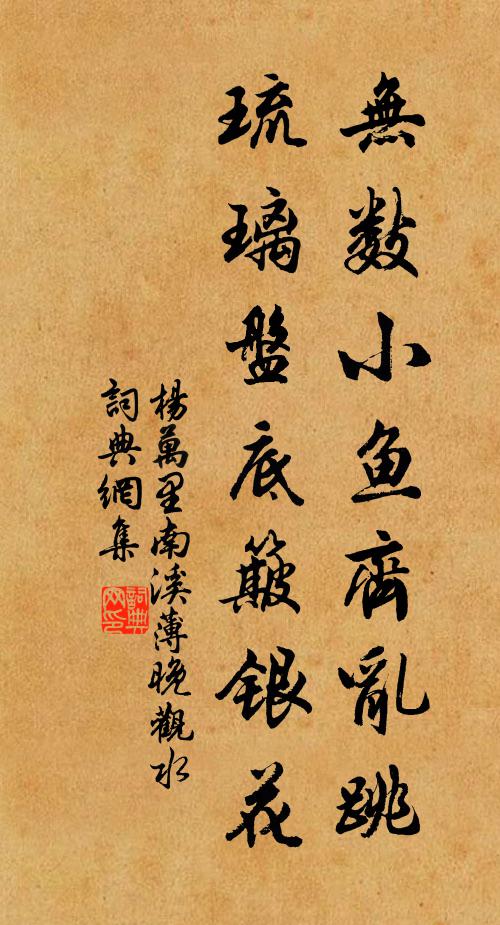 無数小鱼齊亂跳
琉璃盤底簸銀花
楊萬里南溪薄晚觀水
詞典網集
詞典
网印